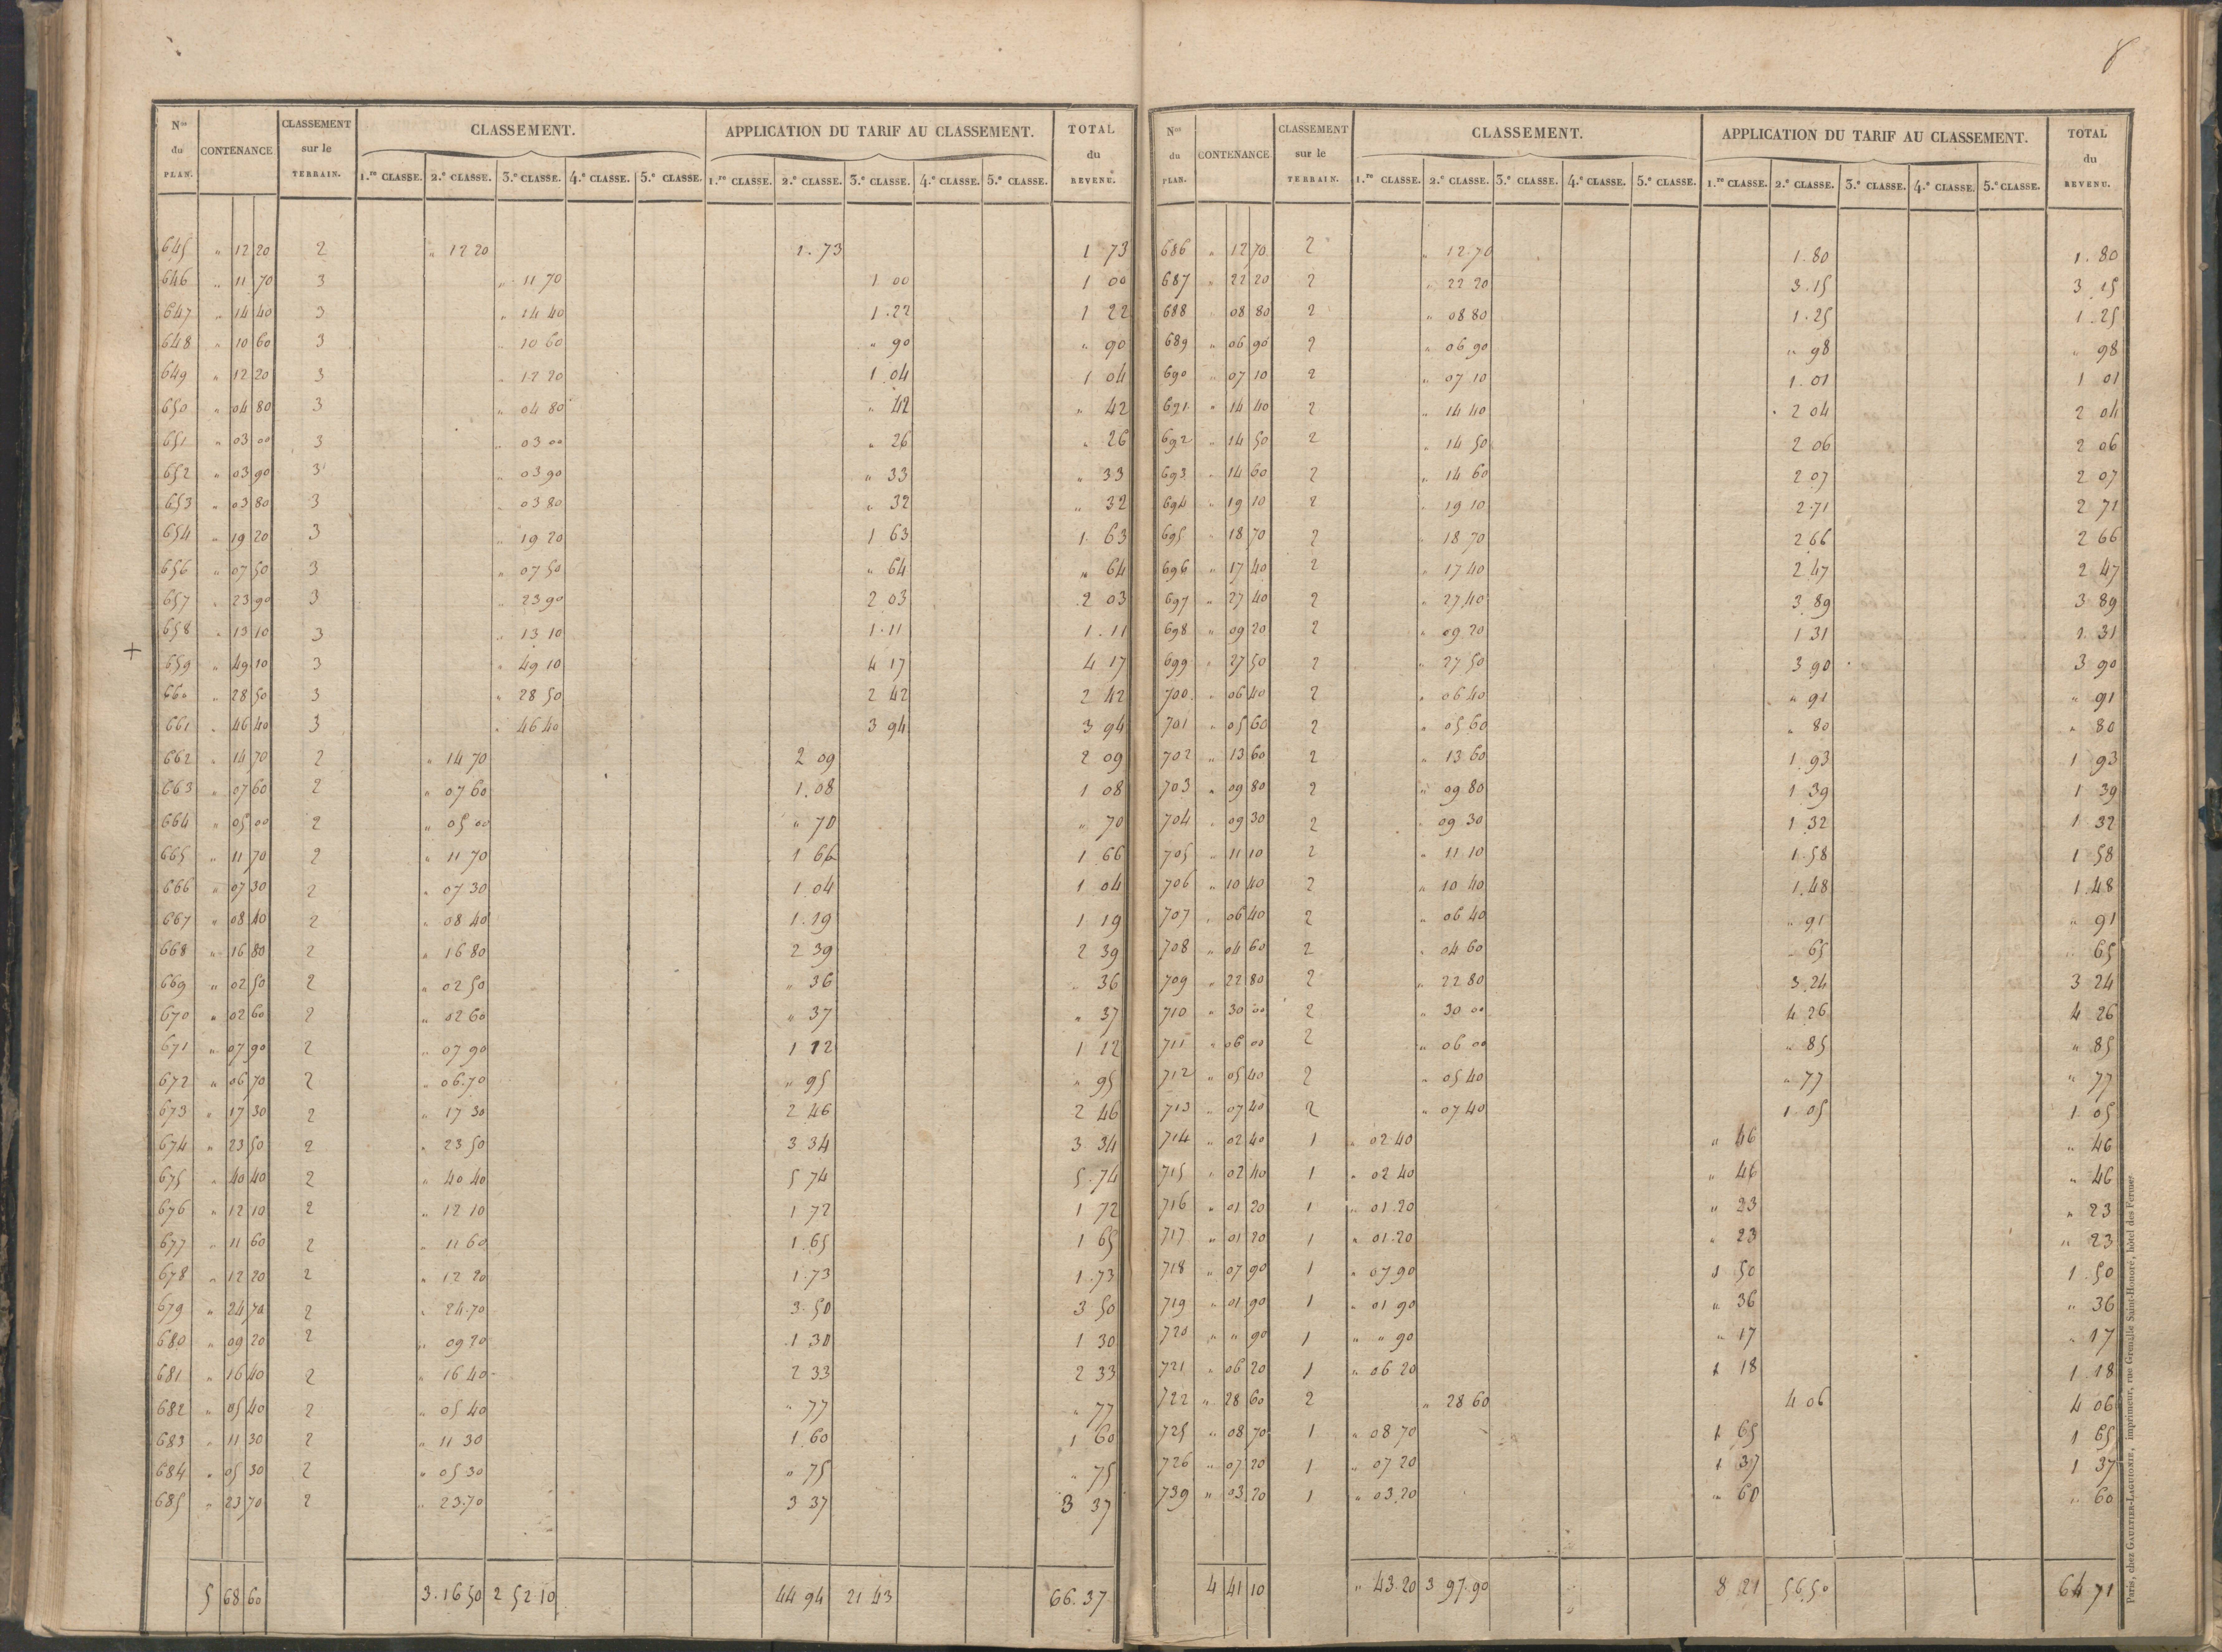 8
Nos du PLAN. CONTENANCE CLASSEMENT sur le TERRAIN. CLASSEMENT. APPLICATION DU TARIF AU CLASSEMENT. TOTAL du REVENU.
1.re CLASSE. 2.e CLASSE. 3.e CLASSE. 4.e CLASSE. 5.e CLASSE. 1.re CLASSE. 2.e CLASSE. 3.e CLASSE. 4.e CLASSE. 5.e CLASSE.
645 " 12 20 2 " 12 20 1.73 1 73
646 " 11 70 3 " 11 70 1 00 1 00
647 " 14 40 3 " 14 40 1.22 1 22
648 " 10 60 3 " 10 60 " 90 " 90
649 " 12 20 3 " 12 20 1 04 1 04
650 " 04 80 3 " 04 80 " 42 " 42
651 " 03 00 3 " 03 00 " 26 " 26
652 " 03 90 3 " 03 90 " 33 " 33
653 " 03 80 3 " 03 80 " 32 " 32
654 " 19 20 3 " 19 20 1 63 1 63
656 " 07 50 3 " 07 50 " 64 " 64
657 " 23 90 3 " 23 90 2 03 2 03
658 " 13 10 3 " 13 10 1.11 1.11
+ 659 " 49 10 3 " 49 10 4 17 4 17
660 " 28 50 3 " 28 50 2 42 2 42
661 " 46 40 3 " 46 40 3 94 3 94
662 " 14 70 2 " 14 70 2 09 2 09
663 " 07 60 2 " 07 60 1.08 1 08
664 " 05 00 2 " 05 00 " 70 " 70
665 " 11 70 2 " 11 70 1 66 1 66
666 " 07 30 2 " 07 30 1.04 1 04
667 " 08 40 2 " 08 40 1.19 1 19
668 " 16 80 2 " 16 80 2 39 2 39
669 " 02 50 2 " 02 50 " 36 " 36
670 " 02 60 2 " 02 60 " 37 " 37
671 " 07 90 2 " 07 90 1 12 1 12
672 " 06 70 2 " 06.70 " 95 " 95
673 " 17 30 2 " 17 30 2 46 2 46
674 " 23 50 2 " 23 50 3 34 3 34
675 " 40 40 2 " 40 40 5 74 5.74
676 " 12 10 2 " 12 10 1 72 1 72
677 " 11 60 2 " 11 60 1.65 1 65
678 " 12 20 2 " 12 20 1.73 1.73
679 " 24 70 2 " 24.70 3.50 3 50
680 " 09 20 2 " 09 20 1 30 1 30
681 " 16 40 2 " 16 40 2 33 2 33
682 " 05 40 2 " 05 40 " 77 " 77
683 " 11 30 2 " 11 30 1.60 1 60
684 " 05 30 2 " 05 30 " 75 " 75
685 " 23 70 2 " 23.70 3 37 3 37
5 68 60 3.16 50 2 52.10 44 94 21 43 66.37
Nos du PLAN. CONTENANCE CLASSEMENT sur le TERRAIN. CLASSEMENT. APPLICATION DU TARIF AU CLASSEMENT. TOTAL du REVENU.
1.re CLASSE. 2.e CLASSE. 3.e CLASSE. 4.e CLASSE. 5.e CLASSE. 1.re CLASSE. 2.e CLASSE. 3.e CLASSE. 4.e CLASSE. 5.e CLASSE.
686 " 12 70 2 " 12.70 1.80 1.80
687 " 22 20 2 " 22 20 3.15 3 15
688 " 08 80 2 " 08 80 1.25 1.25
689 " 06 90 2 " 06 90 " 98 " 98
690 " 07 10 2 " 07 10 1.01 1 01
691 " 14 40 2 " 14 40 2 04 2 04
692 " 14 50 2 " 14 50 2 06 2 06
693 " 14 60 2 " 14 60 2 07 2 07
694 " 19 10 2 " 19 10 2.71 2 71
695 " 18 70 2 " 18 70 2 66 2 66
696 " 17 40 2 " 17 40 2.47 2 47
697 " 27 40 2 " 27 40 3.89 3 89
698 " 09 20 2 " 09 20 1 31 1 31
699 " 27 50 2 " 27 50 3 90 3 90
700 " 06 40 2 " 06 40 " 91 " 91
701 " 05 60 2 " 05 60 " 80 " 80
702 " 13 60 2 " 13 60 1.93 1 93
703 " 09 80 2 " 09 80 1 39 1 39
704 " 09 30 2 " 09 30 1 32 1 32
705 " 11 10 2 " 11 10 1.58 1 58
706 " 10 40 2 " 10 40 1.48 1.48
707 " 06 40 2 " 06 40 " 91 " 91
708 " 04 60 2 " 04 60 " 65 " 65
709 " 22 80 2 " 22 80 3.24 3 24
710 " 30 00 2 " 30 00 4 26 4 26
711 " 06 00 2 " 06 00 " 85 " 85
712 " 05 40 2 " 05 40 " 77 " 77
713 " 07 40 2 " 07 40 1 05 1 05
714 " 02 40 1 " 02.40 " 46 " 46
715 " 02 40 1 " 02 40 " 46 " 46
716 " 01 20 1 " 01.20 " 23 " 23
717 " 01 20 1 " 01.20 " 23 " 23
718 " 07 90 1 " 07.90 1 50 1.50
719 " 01 90 1 " 01 90 " 36 " 36
720 " " 90 1 " " 90 " 17 " 17
721 " 06 20 1 " 06 20 1 18 1.18
722 " 28 60 2 " 28 60 4 06 4 06
725 " 08 70 1 " 08 70 1 65 1 65
726 " 07 20 1 " 07 20 1 37 1 37
739 " 03 20 1 " 03.20 " 60 " 60
4 41 10 " 43.20 3 97.90 8 21 56.50 64 71
Paris, chez GAULTIER-LAGUIONIE, imprimeur, rue Grenelle Saint-Honoré, hôtel des Fermes